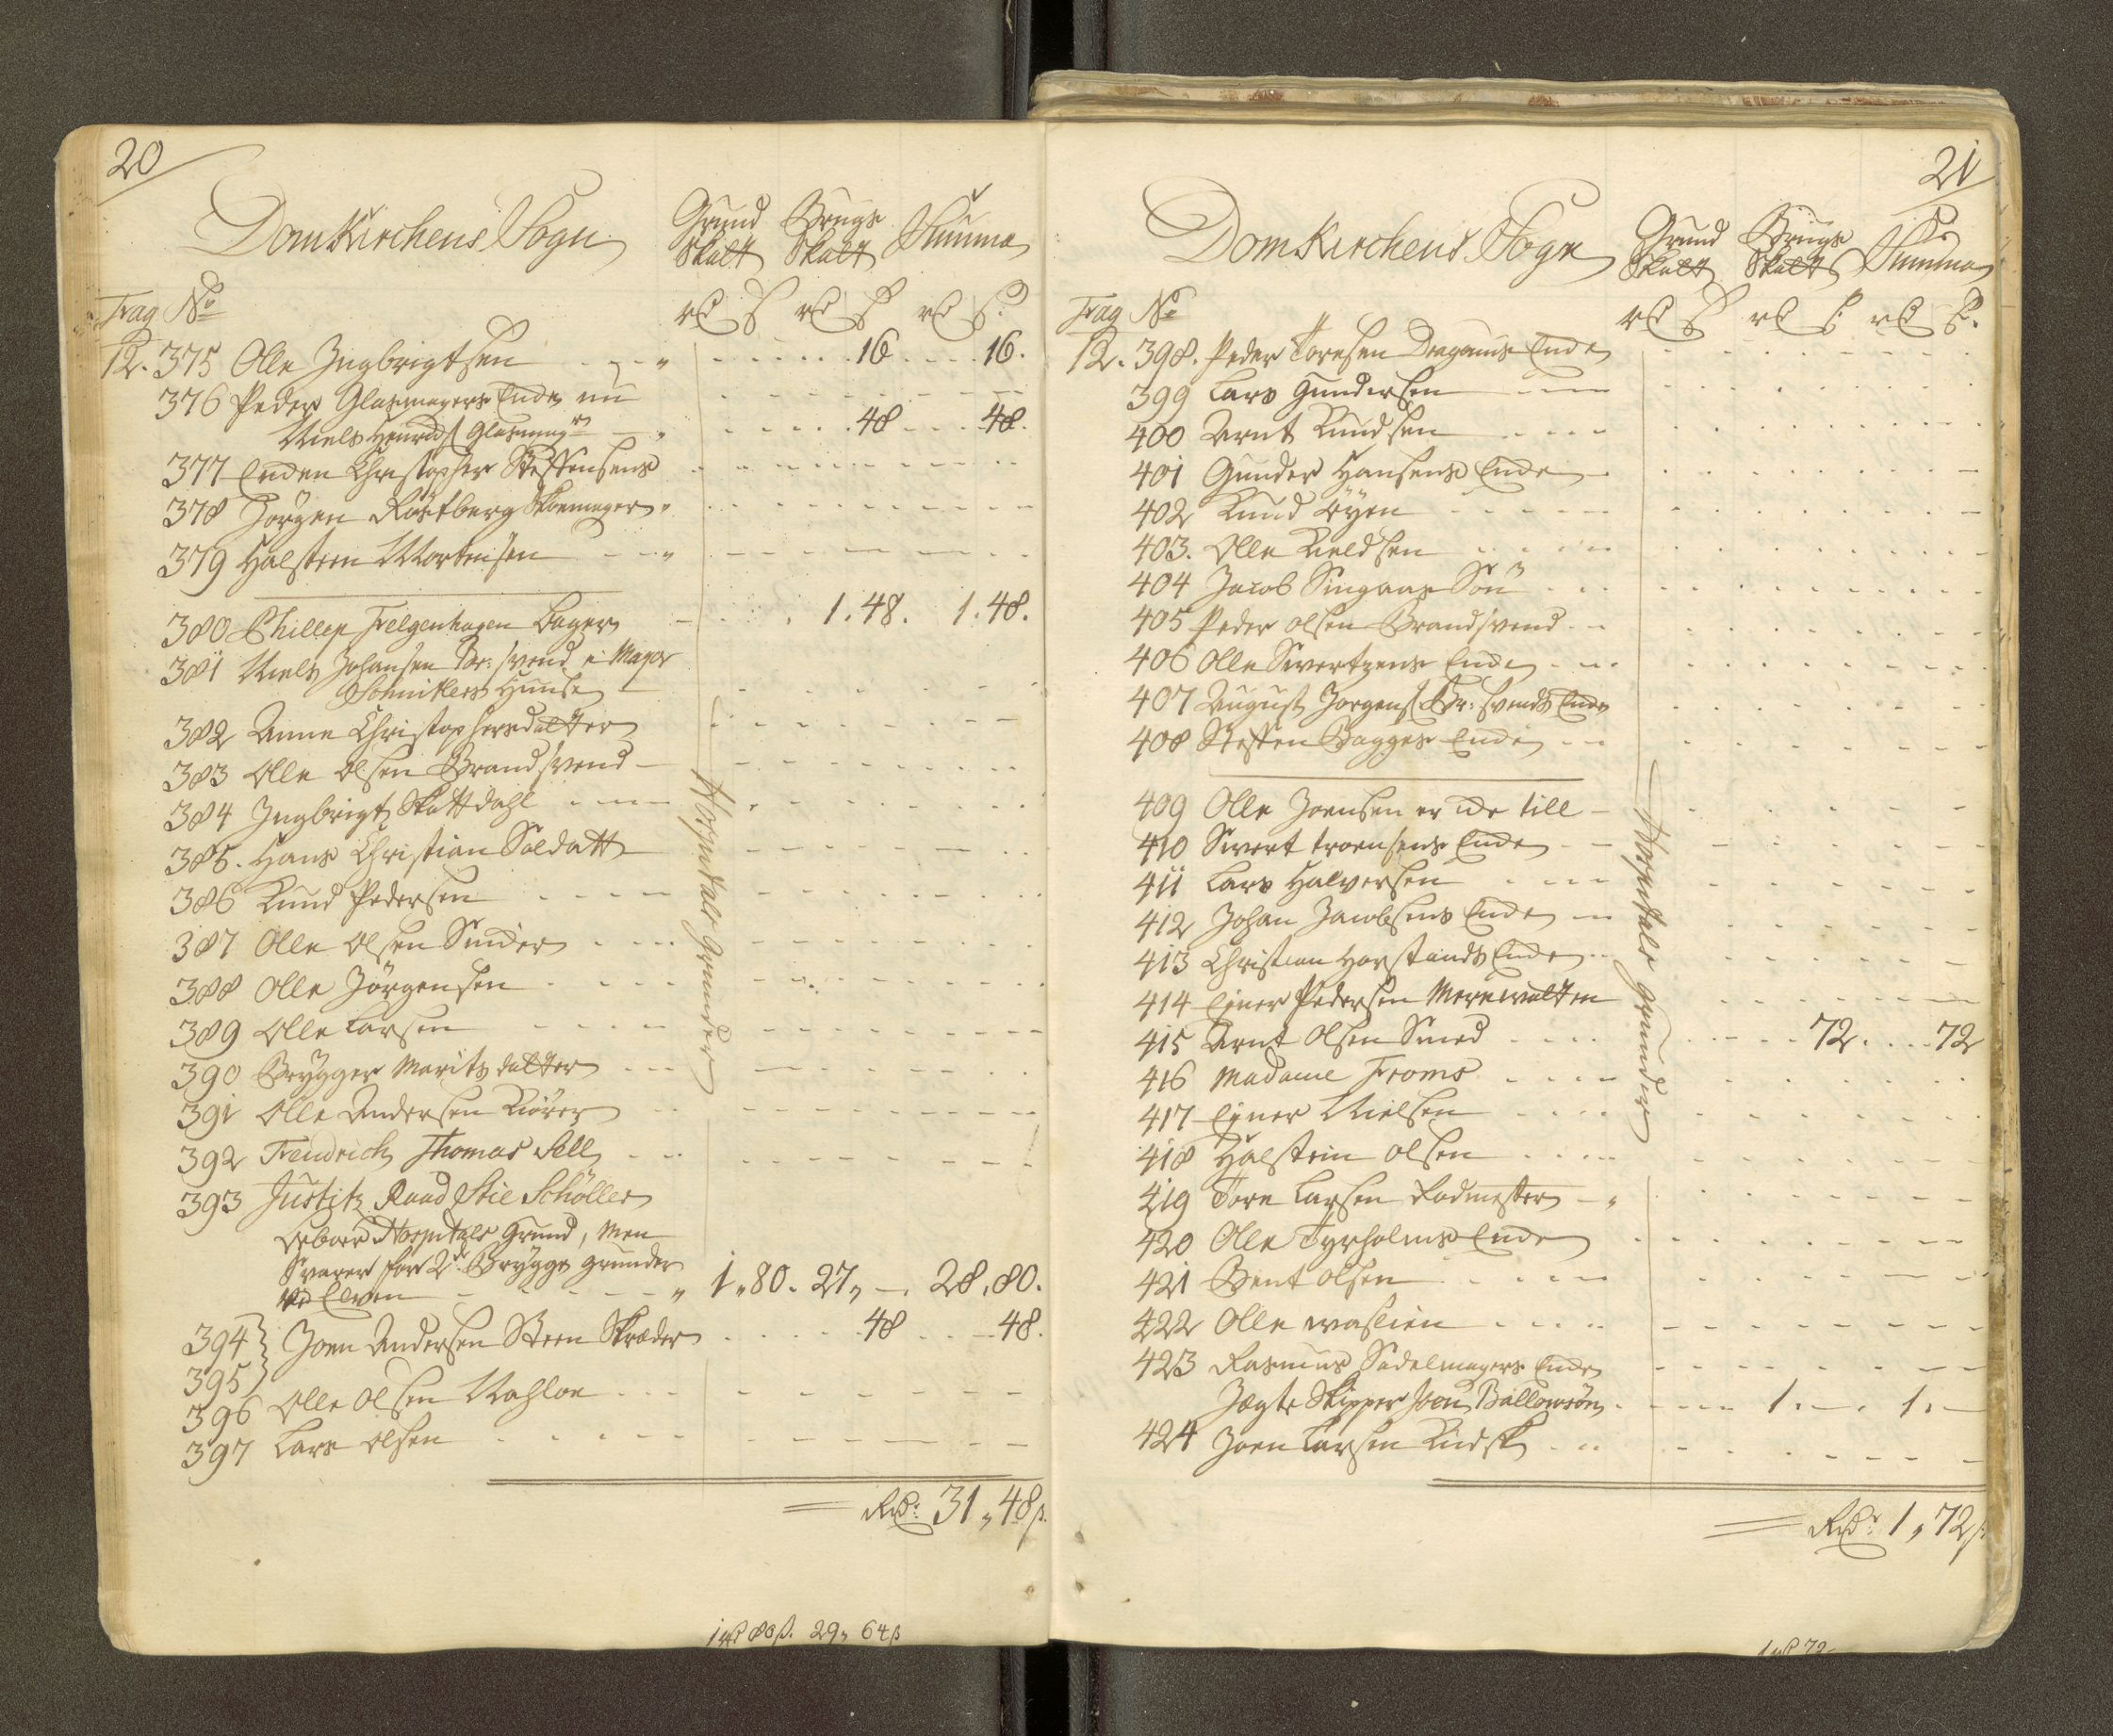 20
DomKirchens Sogn
Grund Skatt Brugs Skatt Summa
Frag No rd s rd s rd s
12. 375 Olle Ingbrigtsen - - - " . . . . . . 16 . . . . 16.
376 Peder Glasmagers Encke nu
Niels Henrichs Glasmagr - " . . . . . . 48 . . . 48.
377 Encken Christopher Steffensens
378 Jörgen Röstberg Skoemager "
379 Halsteen Mortensen - - - "
380 Phillep Felgenhagen Bager - . . . 1.48. 1.48.
381 Niels Johansen Br: svend i Major
Schnitlers Huuse
382 Anne Christophersdatter
383 Olle Olsen Brandsvend -
384 Ingbrigt Skattdahl - - - -
385. Hans Christian Soldatt
386 Knud Pedersen - - - -
387 Olle Olsen Snider - - - -
388 Olle Jörgensen - - - -
389 Olle Larsen - - - - -
390 Brygger Marits datter - - -
391 Olle Andersen Kiörer - -
392 Fendrich Thomas Sell - - -
393 Justitz Raad Stie Schöller
beboer Hospitals Grund, Men
Svarer for 2de Brygge grunder
ved Elven - - - - - " 1"80. 27"-. 28.80.
394 } Joen Andersen Steen Skræder . . . . . 48 . . - 48.
395 }
396 Olle Olsen Mahloe . . .
397 Lars Olsen - - - - -
Hospitals Grunder
Rd: 31"48s.
1 rd 80s. 29" 64s
21
DomKirchens Sogn
Grund Skatt Brugs Skatt Summa
Frag No rd s rd s rd s.
12. 398. Peder Toresen Dragouns Encke
399 Lars Gundersen - - -
400 Arnt Knudsen - - - -
401 Gunder Hansens Encke -
402 Knud Öyen - - - - -
403. Olle Keldsen - - - - -
404 Jacob Singaas Sön - - -
405 Peder Olsen Brandsvend - -
406 Olle Sivertzens Encke - - -
407 August Jörgens: Br: svends Encke
408 Steffen Bagges Encke - -
409 Olle Joensen er icke till -
410 Sivert troensens Encke - -
411 Lars Halversen - - - -
412 Johan Jacobsens Encke - -
413 Christian Harstands Encke - -
414 Ejner Pedersen Merewalten
415 Arnt Olsen Smed - - - - . . . . 72. . . . 72
416 Madame Froms - - - -
417 Ejner Nielsen - - - -
418 Halstein Olsen - - - -
419 Tore Larsen Rodmester - "
420 Olle Tyrholms Encke
421 Bent Olsen - - - - -
422 Olle waslien - - - -
423 Rasmus Sadelmagers Encke
Jægte Skipper Joen Ballowsön. - - - - 1.-. 1.-
424 Joen Larsen Kudsk - - -
Hospitals Grunder
Rd: 1"72s:
1 rd 72-